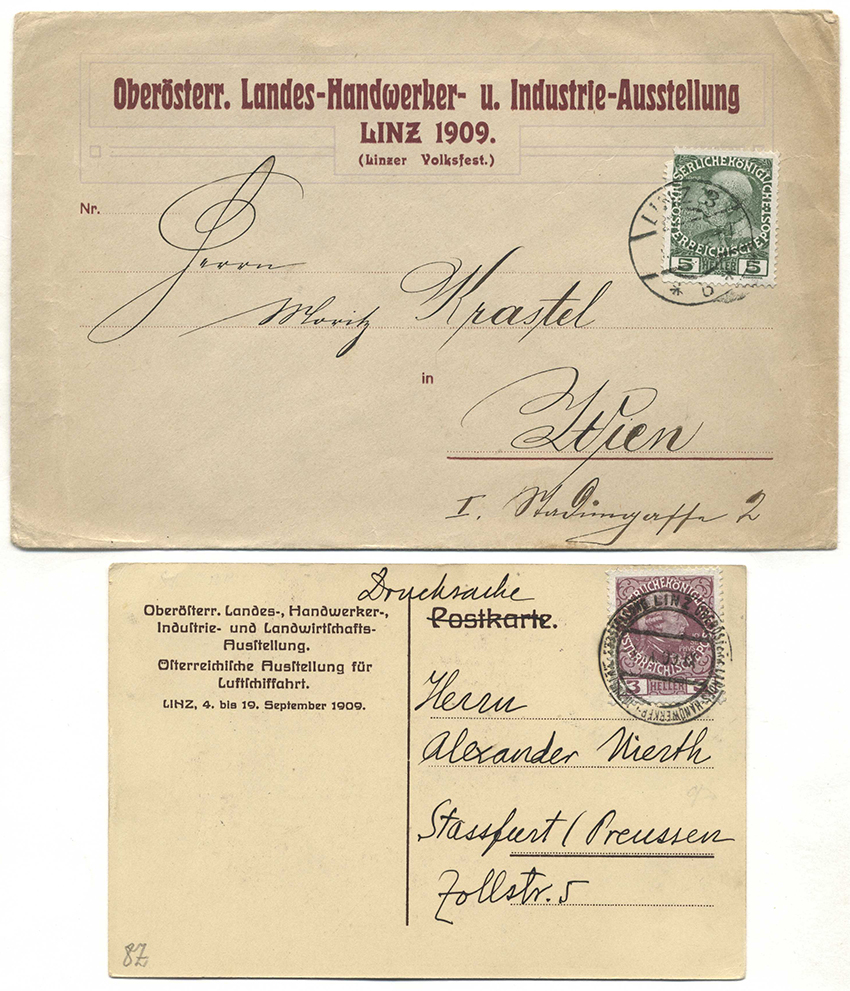 Oberösterr. Landes-Handwerker- u. Industrie-Ausstellung
LINZ 1909.
(Linzer Volksfest.)
Nr.
Herrn
Moritz Krastel
in
Wien
I. 2
LINZ 3
KAISERLICHE KÖNIGLICHE ÖSTERREICHISCHE POST
5 HELLER 5
Drucksache
Postkarte.
Oberösterr. Landes-, Handwerker-,
Industrie- und Landwirtschafts-
Ausstellung.
Österreichische Ausstellung für
Luftschiffahrt.
LINZ, 4. bis 19. September 1909.
LINZ
3 HELLER
Herrn
Alexander Vierth
Stassfurt / Preussen
Zollstr. 5
8Z